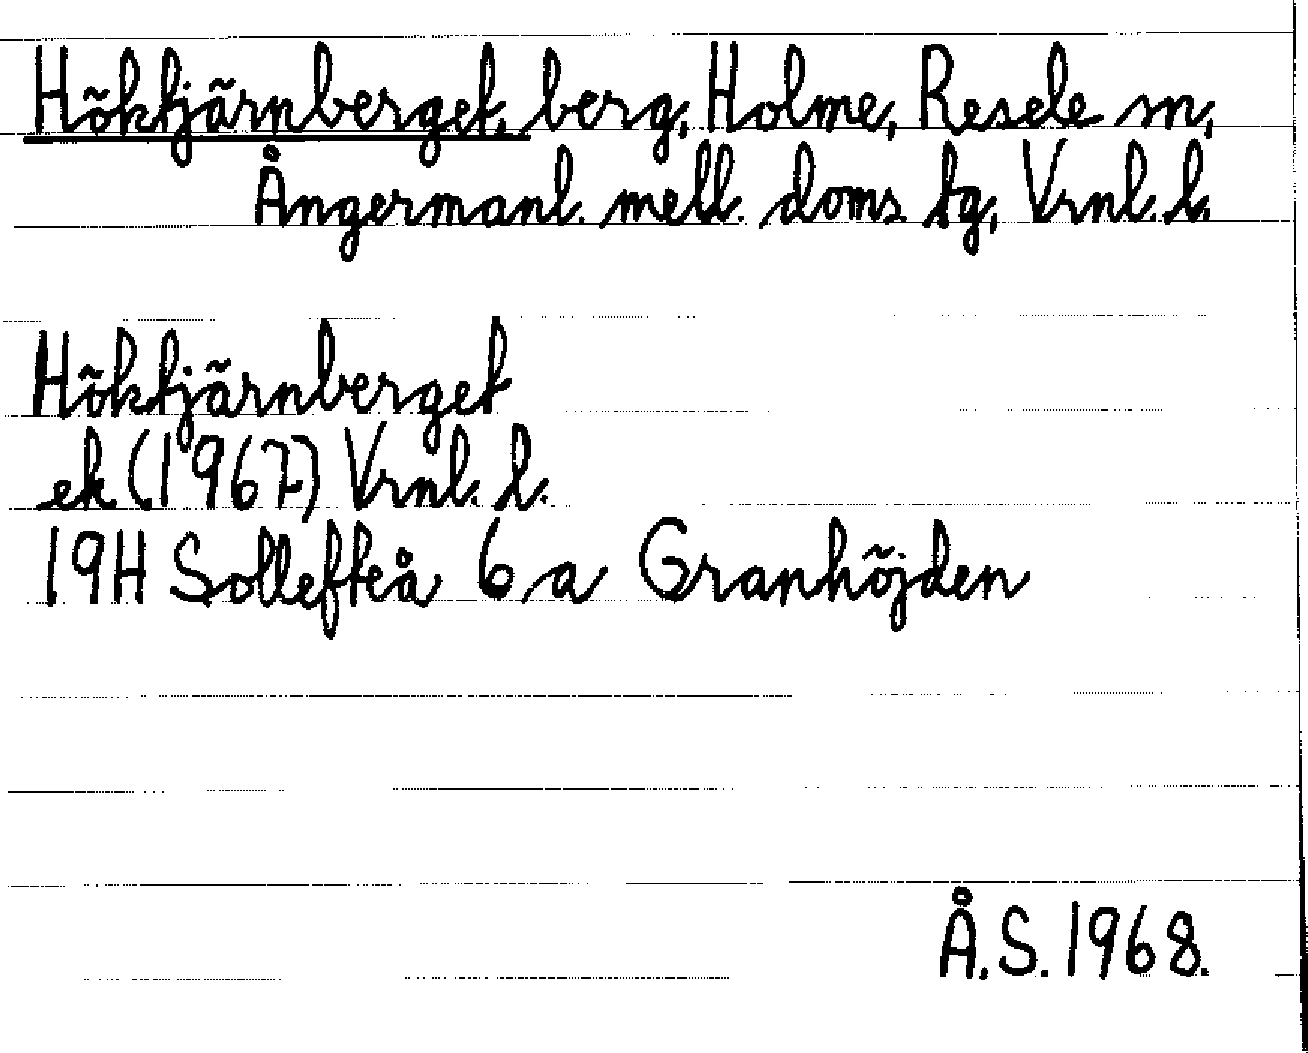 Höktjärnberget, berg, Holme, Resele sn,
Ångermanl. mell. doms. tg, Vrnl. l.
Höktjärnberget
ek (1967) Vrnl. l.
19H Sollefteå 6 a Granhöjden
Å.S. 1968.